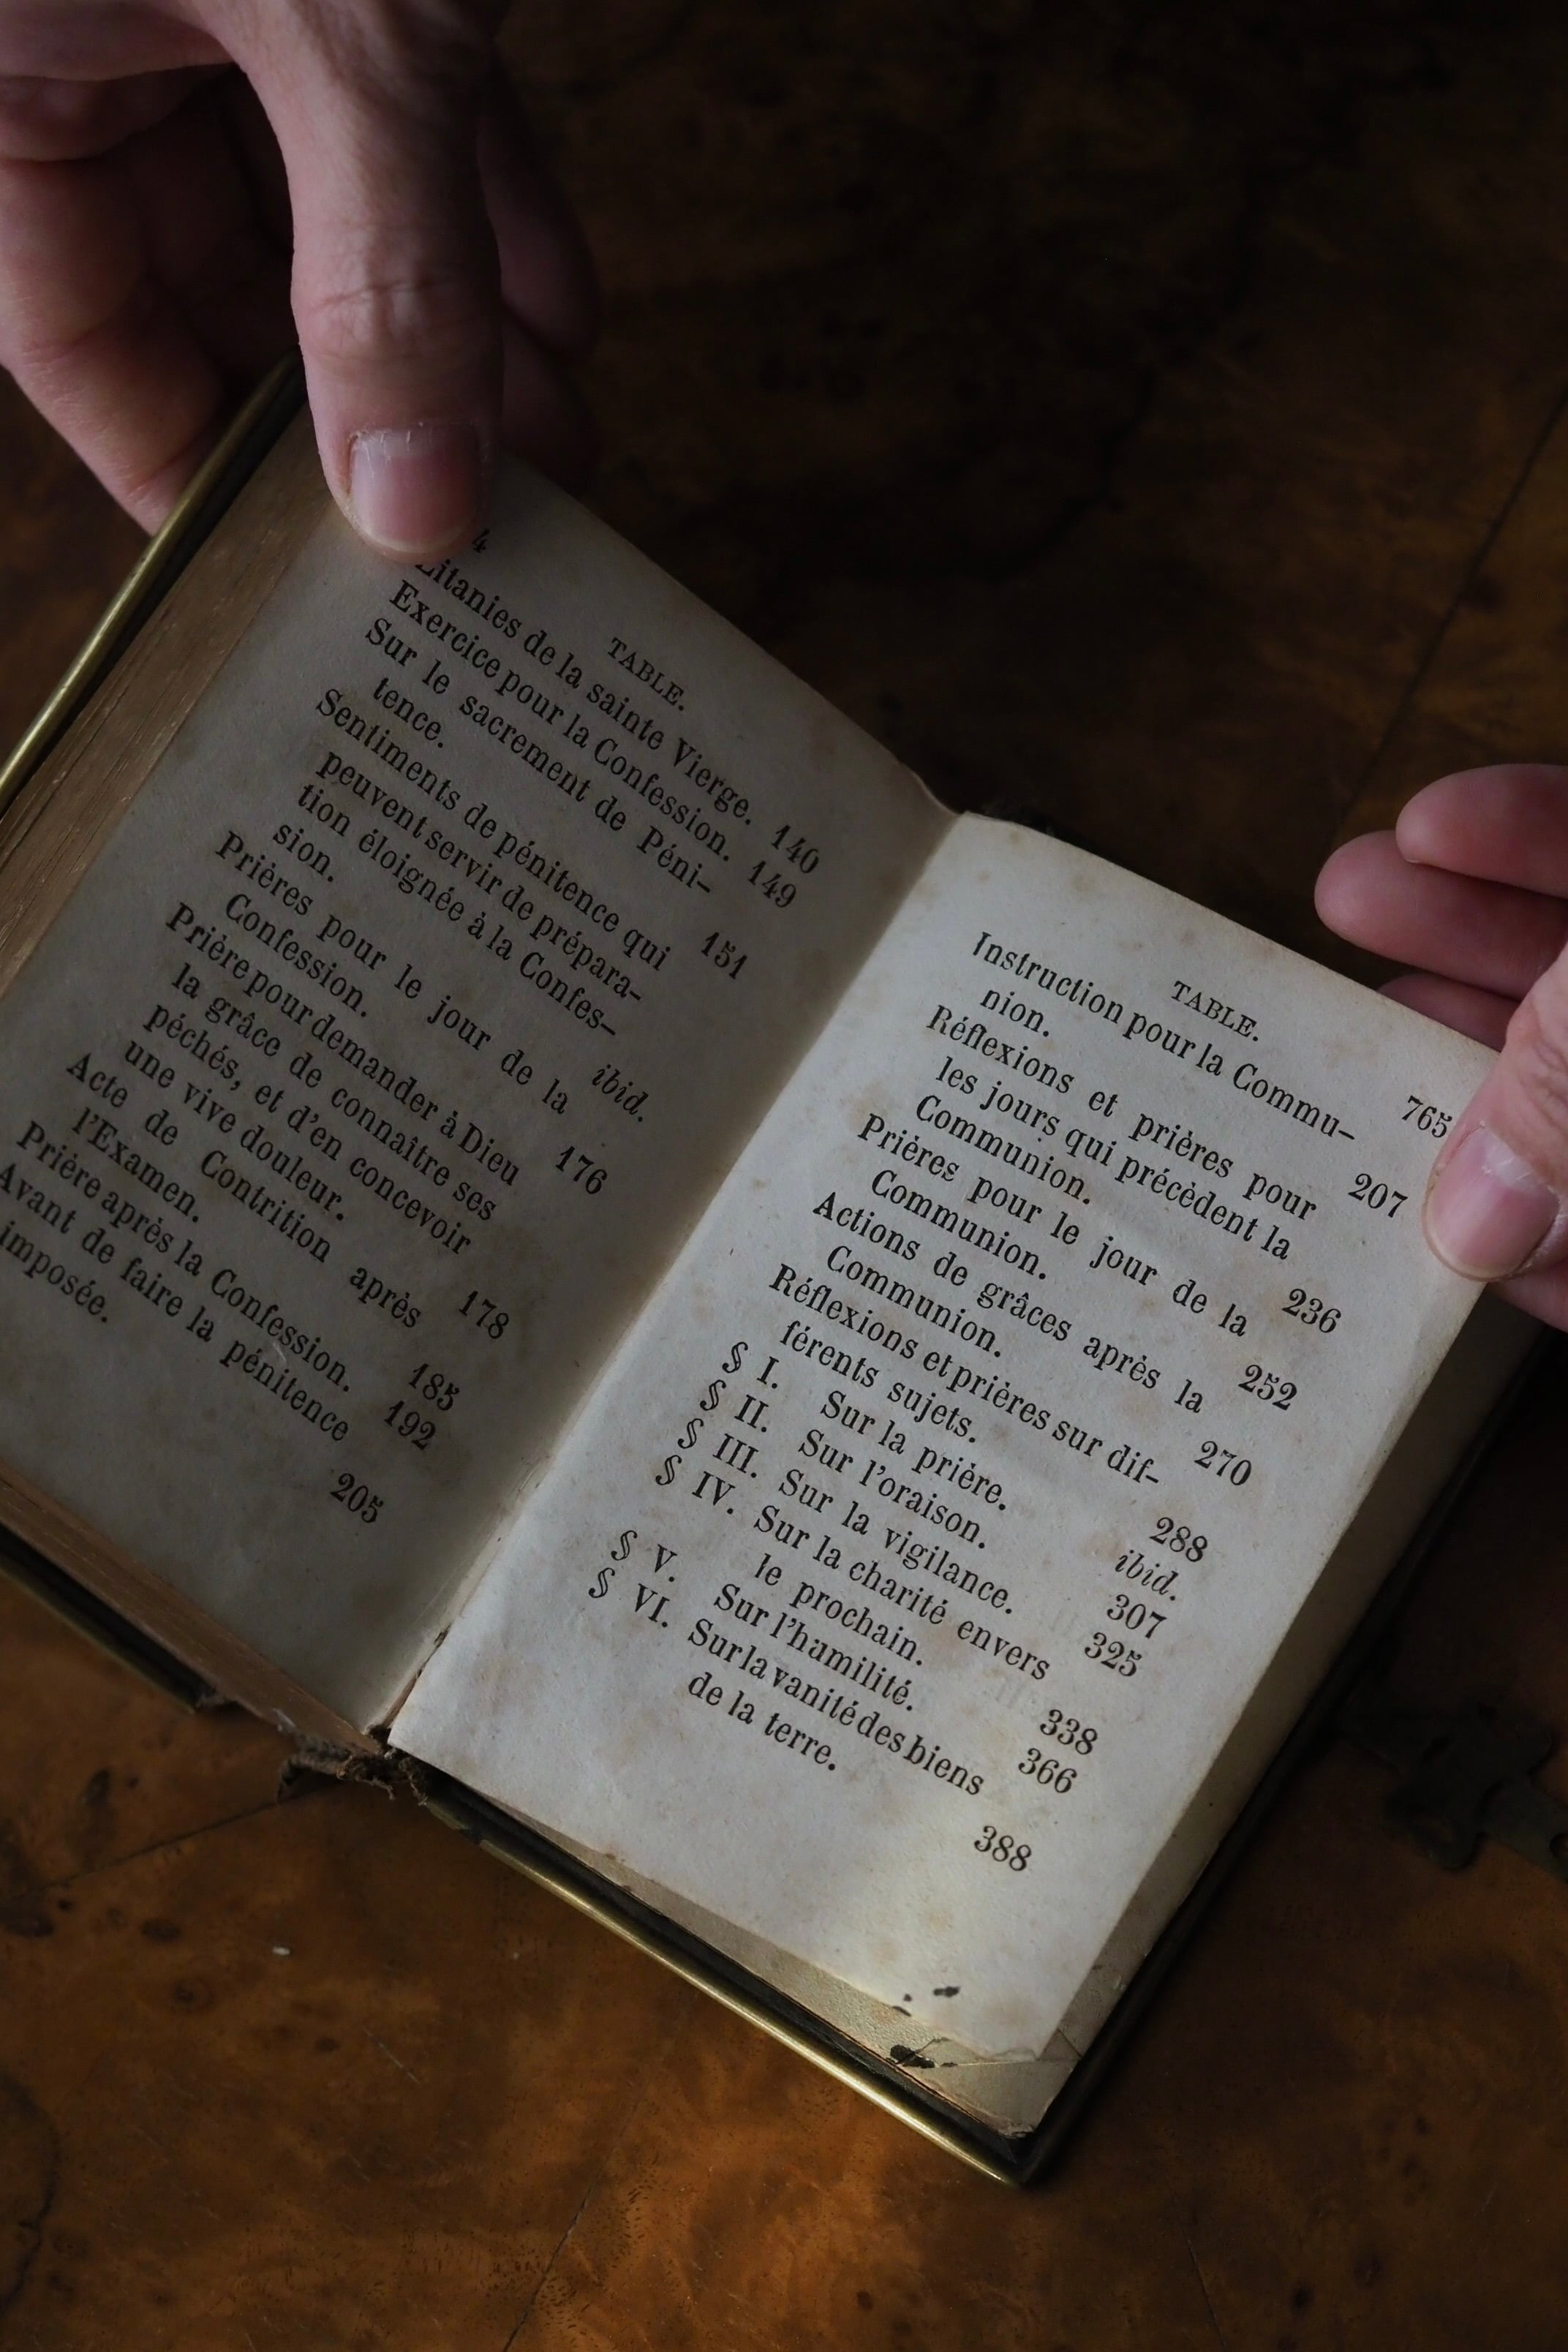 4
TABLE.
Litanies de la sainte Vierge. 140
Exercice pour la Confession. 149
Sur le sacrement de Péni-
tence. 151
Sentiments de pénitence qui
peuvent servir de prépara-
tion éloignée à la Confes-
sion. ibid.
Prières pour le jour de la
Confession. 176
Prière pour demander à Dieu
la grâce de connaître ses
péchés, et d'en concevoir
une vive douleur. 178
Acte de Contrition après
l'Examen. 185
Prière après la Confession. 192
Avant de faire la pénitence
imposée. 205
TABLE. 765
Instruction pour la Commu-
nion. 207
Réflexions et prières pour
les jours qui précèdent la
Communion. 236
Prières pour le jour de la
Communion. 252
Actions de grâces après la
Communion. 270
Réflexions et prières sur dif-
férents sujets. 288
§ I. Sur la prière. ibid.
§ II. Sur l'oraison. 307
§ III. Sur la vigilance. 325
§ IV. Sur la charité envers
le prochain. 338
§ V. Sur l'humilité. 366
§ VI. Sur la vanité des biens
de la terre. 388